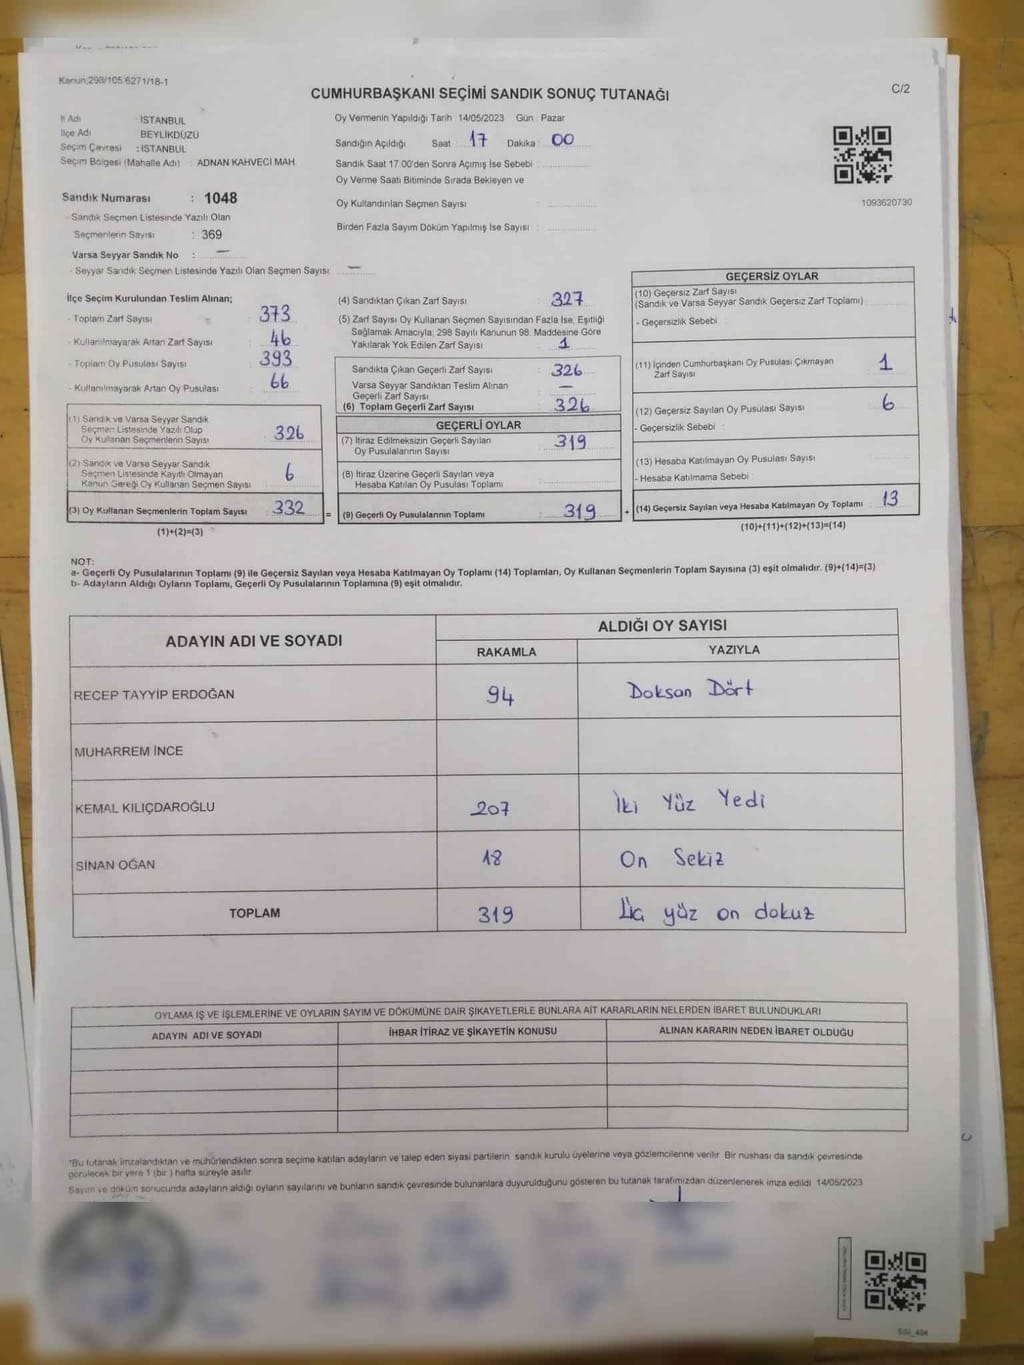 Kanun:298/105.6271/18-1
CUMHURBAŞKANI SEÇİMİ SANDIK SONUÇ TUTANAĞI
C/2
İl Adı : İSTANBUL
İlçe Adı BEYLİKDÜZÜ
Seçim Çevresi : İSTANBUL
Seçim Bölgesi (Mahalle Adı) : ADNAN KAHVECİ MAH.
Sandık Numarası : 1048
- Sandık Seçmen Listesinde Yazılı Olan
Seçmenlerin Sayısı : 369
Varsa Seyyar Sandık No : —
- Seyyar Sandık Seçmen Listesinde Yazılı Olan Seçmen Sayısı: —
Oy Vermenin Yapıldığı Tarih 14/05/2023 Gün : Pazar
Sandığın Açıldığı Saat : 17 Dakika : 00
Sandık Saat 17:00'den Sonra Açımış İse Sebebi :
Oy Verme Saati Bitiminde Sırada Bekleyen ve
Oy Kullandırılan Seçmen Sayısı :
Birden Fazla Sayım Döküm Yapılmış İse Sayısı :
1093620730
İlçe Seçim Kurulundan Teslim Alınan;
- Toplam Zarf Sayısı : 373
- Kullanılmayarak Artan Zarf Sayısı : 46
- Toplam Oy Pusulası Sayısı : 393
- Kullanılmayarak Artan Oy Pusulası : 66
(1) Sandık ve Varsa Seyyar Sandık
Seçmen Listesinde Yazılı Olup
Oy Kullanan Seçmenlerin Sayısı : 326
(2) Sandık ve Varsa Seyyar Sandık
Seçmen Listesinde Kayıtlı Olmayan
Kanun Gereği Oy Kullanan Seçmen Sayısı : 6
(3) Oy Kullanan Seçmenlerin Toplam Sayısı : 332 =
(1)+(2)=(3)
(4) Sandıktan Çıkan Zarf Sayısı : 327
(5) Zarf Sayısı Oy Kullanan Seçmen Sayısından Fazla İse, Eşitliği
Sağlamak Amacıyla; 298 Sayılı Kanunun 98. Maddesine Göre
Yakılarak Yok Edilen Zarf Sayısı : 1
Sandıkta Çıkan Geçerli Zarf Sayısı : 326
Varsa Seyyar Sandıktan Teslim Alınan
Geçerli Zarf Sayısı : —
(6) Toplam Geçerli Zarf Sayısı : 326
GEÇERLİ OYLAR
(7) İtiraz Edilmeksizin Geçerli Sayılan
Oy Pusulalarının Sayısı : 319
(8) İtiraz Üzerine Geçerli Sayılan veya
Hesaba Katılan Oy Pusulası Toplamı :
(9) Geçerli Oy Pusulalarının Toplamı : 319 +
GEÇERSİZ OYLAR
(10) Geçersiz Zarf Sayısı
(Sandık ve Varsa Seyyar Sandık Geçersiz Zarf Toplamı)
- Geçersizlik Sebebi :
(11) İçinden Cumhurbaşkanı Oy Pusulası Çıkmayan
Zarf Sayısı : 1
(12) Geçersiz Sayılan Oy Pusulası Sayısı : 6
- Geçersizlik Sebebi :
(13) Hesaba Katılmayan Oy Pusulası Sayısı :
- Hesaba Katılmama Sebebi :
(14) Geçersiz Sayılan veya Hesaba Katılmayan Oy Toplamı : 13
(10)+(11)+(12)+(13)=(14)
NOT:
a- Geçerli Oy Pusulalarının Toplamı (9) ile Geçersiz Sayılan veya Hesaba Katılmayan Oy Toplamı (14) Toplamları, Oy Kullanan Seçmenlerin Toplam Sayısına (3) eşit olmalıdır. (9)+(14)=(3)
b- Adayların Aldığı Oyların Toplamı, Geçerli Oy Pusulalarının Toplamına (9) eşit olmalıdır.
ADAYIN ADI VE SOYADI
ALDIĞI OY SAYISI
RAKAMLA YAZIYLA
RECEP TAYYİP ERDOĞAN 94 Doksan Dört
MUHARREM İNCE
KEMAL KILIÇDAROĞLU 207 İki Yüz Yedi
SİNAN OĞAN 18 On Sekiz
TOPLAM 319 Üç yüz on dokuz
OYLAMA İŞ VE İŞLEMLERİNE VE OYLARIN SAYIM VE DÖKÜMÜNE DAİR ŞİKAYETLERLE BUNLARA AİT KARARLARIN NELERDEN İBARET BULUNDUKLARI
ADAYIN ADI VE SOYADI İHBAR İTİRAZ VE ŞİKAYETİN KONUSU ALINAN KARARIN NEDEN İBARET OLDUĞU
*Bu tutanak imzalandıktan ve mühürlendikten sonra seçime katılan adayların ve talep eden siyasi partilerin sandık kurulu üyelerine veya gözlemcilerine verilir. Bir nüshası da sandık çevresinde
görülecek bir yere 1 (bir ) hafta süreyle asılır.
Sayım ve döküm sonucunda adayların aldığı oyların sayılarını ve bunların sandık çevresinde bulunanlara duyurulduğunu gösteren bu tutanak tarafımızdan düzenlenerek imza edildi 14/05/2023